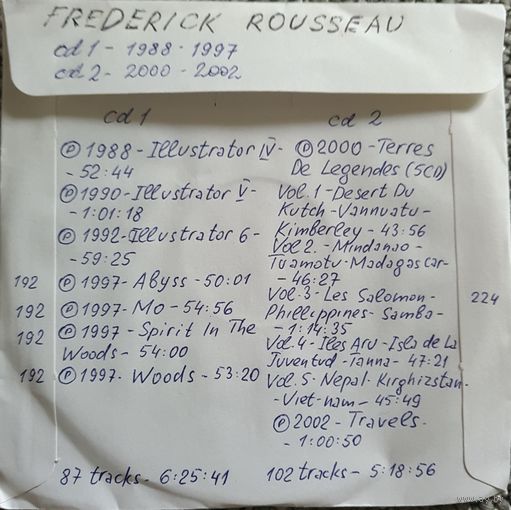 FREDERICK ROUSSEAU
cd 1 - 1988 - 1997
cd 2 - 2000 - 2002
cd 1
℗ 1988 - Illustrator IV -
- 52:44
℗ 1990 - Illustrator V -
- 1:01:18
℗ 1992 - Illustrator 6 -
- 59:25
192 ℗ 1997 - Abyss - 50:01
192 ℗ 1997 - Mo - 54:56
192 ℗ 1997 - Spirit In The
Woods - 54:00
192 ℗ 1997 - Woods - 53:20
87 tracks - 6:25:41
cd 2
℗ 2000 - Terres
De Legendes (5CD)
Vol. 1 - Desert Du
Kutch - Vannuatu -
Kimberley - 43:56
Vol 2. - Mindanao -
Tuamotu - Madagascar -
- 46:27
Vol. 3 - Les Salomon -
Phillippines - Samba -
- 1:14:35
224
Vol. 4 - Iles Aru - Isla de La
Juventud - Tanna - 47:21
Vol. 5 - Nepal - Kirghizstan -
- Viet-nam - 45:49
℗ 2002 - Travels -
- 1:00:50
102 tracks - 5:18:56